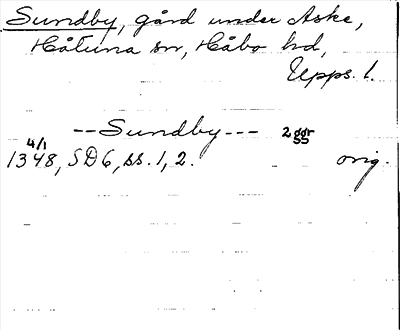 Sundby, gård under Aske,
Håtuna sn, Håbo hd,
Upps. l.
--Sundby-- 2 ggr
4/1
1348, SD6, ss. 1, 2. orig.